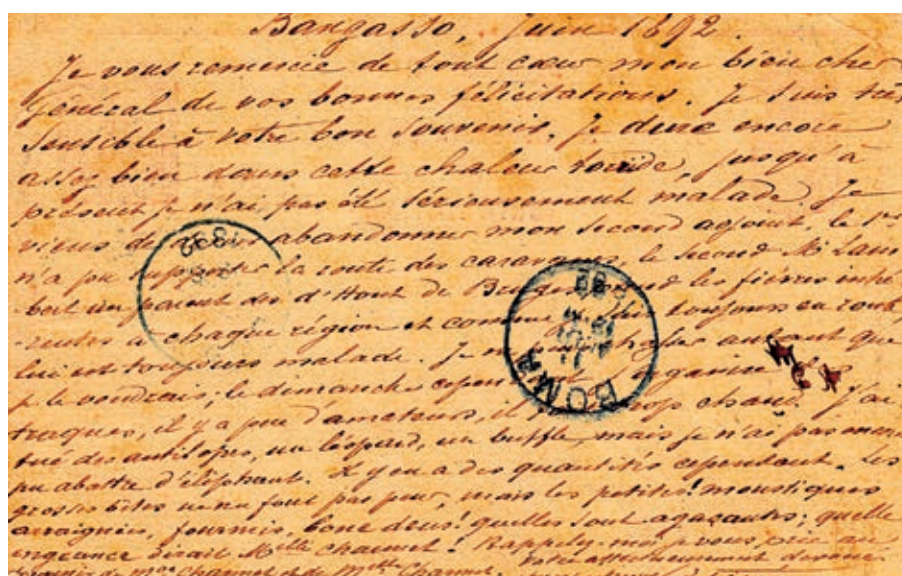 Bangasso, Juin 1892.
Je vous remercie de tout cœur mon bien cher
Général de vos bonnes félicitations. Je suis très
sensible à votre bon souvenir. Je dure encore
assez bien dans cette chaleur torride, jusqu'à
présent je n'ai pas été sérieusement malade. Je
viens de abandonner mon second adjoint, le 1er
n'a pu supporter la route des caravanes, le second Mr Lam
bert un parent des d'Hont de prend les fièvres inhé
-rentes à chaque région et comme toujours en route
lui est toujours malade. Je n'ai chasser autant que
je le voudrais; le dimanche cependant organise
traques, il y a peu d'amateurs, il trop chaud. J'ai
tué des antilopes, un léopard, un buffle, mais je n'ai pas encore
pu abattre d'éléphant. Il y en a des quantités cependant. Les
grosses bêtes ne me font pas peur, mais les petites! moustiques
araignées, fourmis, quelles sont agaçantes; quelle
engeance dirait Melle Charmet! Rappelez-moi je vous prie au
souvenir de Mme Charmet et de Melle Charmet. Votre affectueusement dévoué
1892
BOMA
1892